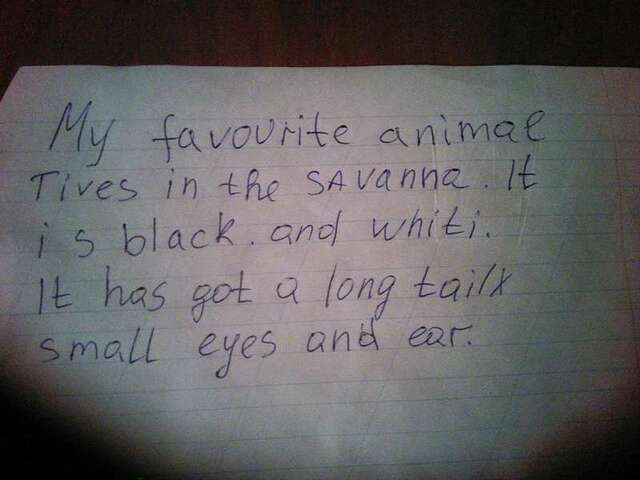 My favourite animal
Tives in the SAvanna. It
is black. and whiti.
It has got a long tailx
small eyes and ear.